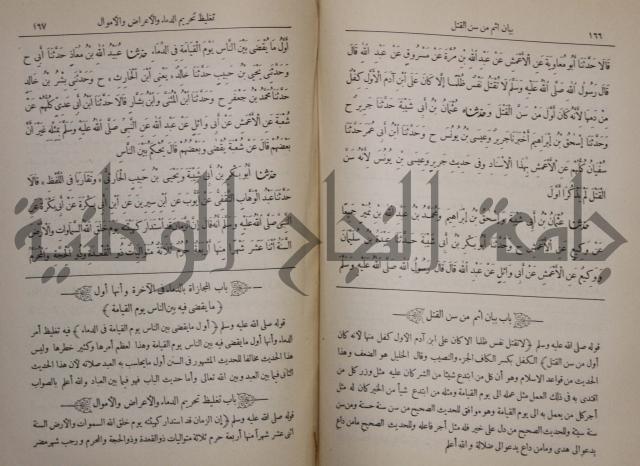 ١٦٦ بيان اثم من سن القتل
قالا حدثنا أبو معاوية عن الأعمش عن عبد الله بن مرة عن مسروق عن عبد الله قال
قال رسول الله صلى الله عليه وسلم لا تقتل نفس ظلما إلا كان على ابن آدم الأول كفل
من دمها لأنه كان أول من سن القتل وحدثناه عثمان بن أبي شيبة حدثنا جرير ح
وحدثنا إسحق بن إبراهيم أخبرنا جرير وعيسى بن يونس ح وحدثنا ابن أبي عمر حدثنا
سفيان كلهم عن الأعمش بهذا الاسناد وفي حديث جرير وعيسى بن يونس لأنه سن
القتل لم يذكرا أول
حدثنا عثمان بن أبي شيبة وإسحق بن إبراهيم ومحمد بن عبد الله بن نمير جميعا
عن وكيع عن الأعمش ح وحدثنا أبو بكر بن أبي شيبة حدثنا عبدة بن سليمان
ووكيع عن الأعمش عن أبي وائل عن عبد الله قال قال رسول الله صلى الله عليه وسلم
باب بيان اثم من سن القتل
قوله صلى الله عليه وسلم ﴿لا تقتل نفس ظلما الا كان على ابن آدم الأول كفل منها لأنه كان
أول من سن القتل﴾ الكفل بكسر الكاف الجزء والنصيب وقال الخليل هو الضعف وهذا
الحديث من قواعد الاسلام وهو أن كل من ابتدع شيئا من الشر كان عليه مثل وزر كل من
اقتدى به في ذلك العمل مثل عمله الى يوم القيامة ومثله من ابتدع شيأ من الخير كان له مثل
أجر كل من يعمل به الى يوم القيامة وهو موافق للحديث الصحيح من سن سنة حسنة ومن سن
سنة سيئة وللحديث الصحيح من دل على خير فله مثل أجر فاعله وللحديث الصحيح مامن داع
يدعو الى هدى ومامن داع يدعو الى ضلالة والله أعلم
تغليظ تحريم الدماء والأعراض والأموال ١٦٧
أول ما يقضى بين الناس يوم القيامة في الدماء حدثنا عبيد الله بن معاذ حدثنا أبي ح
وحدثني يحيى بن حبيب حدثنا خالد يعني ابن الحارث ح وحدثني بشر بن خالد
حدثنا محمد بن جعفر ح وحدثنا ابن المثنى وابن بشار قالا حدثنا ابن أبي عدي كلهم عن
شعبة عن الأعمش عن أبي وائل عن عبد الله عن النبي صلى الله عليه وسلم بمثله غير أن
بعضهم قال عن شعبة يقضى وبعضهم قال يحكم بين الناس
حدثنا أبو بكر بن أبي شيبة ويحيى بن حبيب الحارثي وتقاربا في اللفظ قالا
حدثنا عبد الوهاب الثقفي عن أيوب عن ابن سيرين عن ابن أبي بكرة عن أبي بكرة عن
النبي صلى الله عليه وسلم أنه قال إن الزمان قد استدار كهيئته يوم خلق الله السماوات والأرض
السنة اثنا عشر شهرا منها أربعة حرم ثلاثة متواليات ذو القعدة وذو الحجة والمحرم
باب المجازاة بالدماء في الآخرة وأنها أول
﴿ما يقضى فيه بين الناس يوم القيامة﴾
قوله صلى الله عليه وسلم ﴿أول ما يقضى بين الناس يوم القيامة في الدماء﴾ فيه تغليظ أمر
الدماء وأنها أول ما يقضى فيه بين الناس يوم القيامة وهذا لعظم أمرها وكثير خطرها وليس
هذا الحديث مخالفا للحديث المشهور في السنن أول ما يحاسب به العبد صلاته لأن هذا الحديث
الثاني فيما بين العبد وبين الله تعالى وأما حديث الباب فهو فيما بين العباد والله أعلم بالصواب
باب تغليظ تحريم الدماء والأعراض والأموال
قوله صلى الله عليه وسلم ﴿ان الزمان قد استدار كهيئته يوم خلق الله السموات والأرض السنة
اثنى عشر شهرا منها أربعة حرم ثلاثة متواليات ذو القعدة وذو الحجة والمحرم ورجب شهر مضر
جمعة النجاح الوطنية